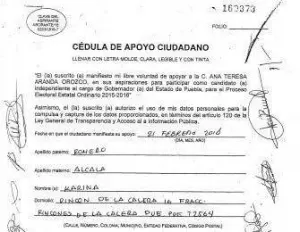 162373
FOLIO:
CÉDULA DE APOYO CIUDADANO
LLENAR CON LETRA MOLDE, CLARA, LEGIBLE Y CON TINTA
"El (la) suscrito (a) manifiesto mi libre voluntad de apoyar a la C. ANA TERESA
ARANDA OROZCO, en sus aspiraciones para participar como candidato (a)
independiente al cargo de Gobernador (a) del Estado de Puebla, para el Proceso
Electoral Estatal Ordinario 2015-2016"
Asimismo, el (la) suscrito (a) autorizo el uso de mis datos personales para la
compulsa y captura de los datos proporcionados, en términos del artículo 120 de la
Ley General de Transparencia y Acceso a la Información Pública.
Fecha en que el ciudadano manifiesta su apoyo: 21 FEBRERO 2016
(DÍA, MES, AÑO)
Apellido paterno: ROMERO
Apellido materno: ALCALA
Nombre (s): KARINA
Domicilio: RINCON DE LA CALERA 1A FRACC.
RINCONES DE LA CALERA PUE. PUE 72564
(CALLE, NÚMERO, COLONIA, MUNICIPIO, ENTIDAD FEDERATIVA, CÓDIGO POSTAL)